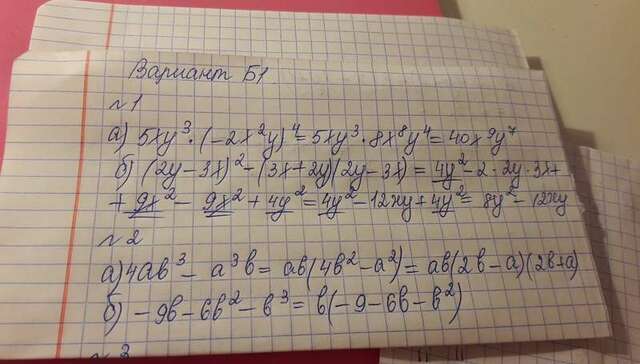 Вариант Б1
№1
а) 5xy³·(-2x²y)⁴=5xy³·8x⁸y⁴=40x⁹y⁷
б) (2y-3x)²-(3x+2y)(2y-3x)=4y²-2·2y·3x+
+9x²-9x²+4y²=4y²-12xy+4y²=8y²-12xy
№2
а) 4ab³-a³b=ab(4b²-a²)=ab(2b-a)(2b+a)
б) -9b-6b²-b³=b(-9-6b-b²)
№3